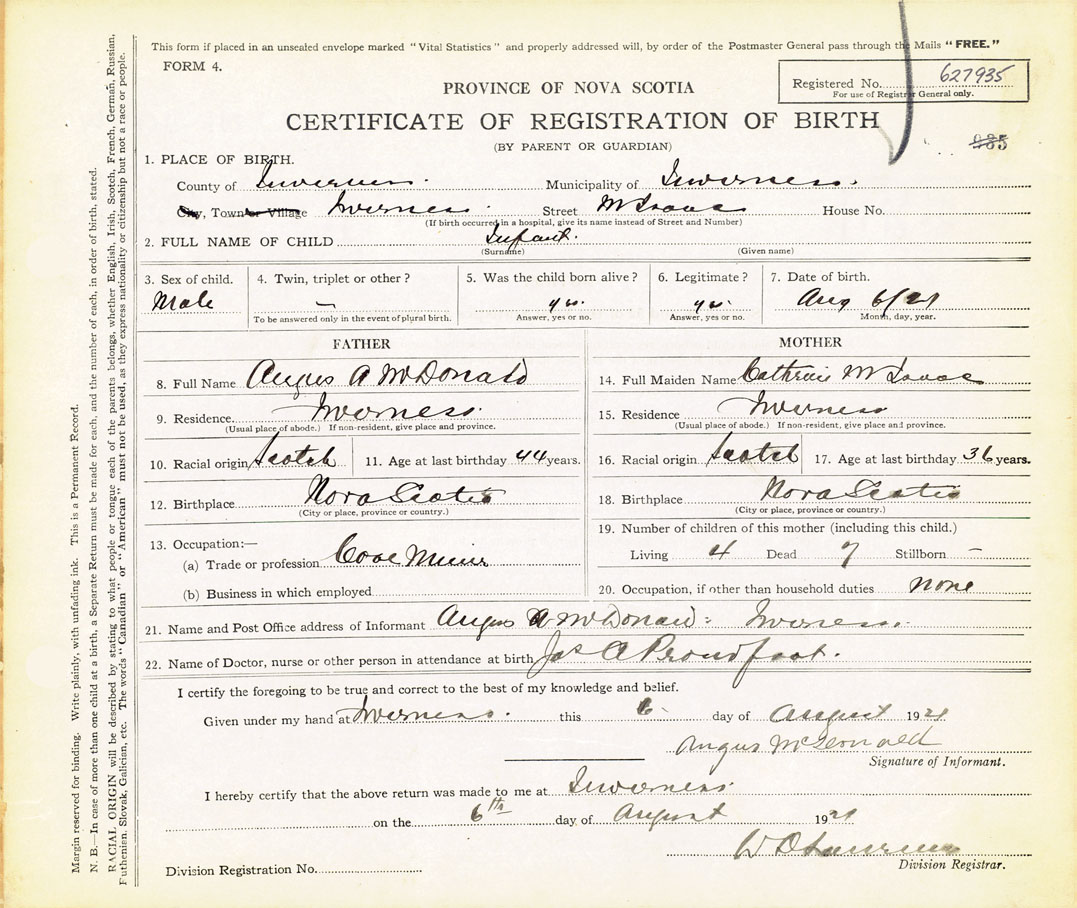 This form if placed in an unsealed envelope marked "Vital Statistics" and properly addressed will, by order of the Postmaster General pass through the Mails "FREE."
FORM 4.
Registered No. 627935
For use of Registrar General only.
PROVINCE OF NOVA SCOTIA
CERTIFICATE OF REGISTRATION OF BIRTH
(BY PARENT OR GUARDIAN)
985
1. PLACE OF BIRTH.
County of Inverness Municipality of Inverness.
City, Town or Village Inverness Street McIsaac House No.
(If birth occurred in a hospital, give its name instead of Street and Number)
2. FULL NAME OF CHILD Infant.
(Surname) (Given name)
3. Sex of child. 4. Twin, triplet or other? 5. Was the child born alive? 6. Legitimate? 7. Date of birth.
Male — yes. yes. Aug 6/21
To be answered only in the event of plural birth. Answer, yes or no. Answer, yes or no. Month, day, year.
FATHER
8. Full Name Angus A McDonald
9. Residence Inverness.
(Usual place of abode.) If non-resident, give place and province.
10. Racial origin Scotch 11. Age at last birthday 44 years.
12. Birthplace Nova Scotia
(City or place, province or country.)
13. Occupation:—
(a) Trade or profession Coal Miner
(b) Business in which employed
MOTHER
14. Full Maiden Name Catherine McIsaac
15. Residence Inverness
(Usual place of abode.) If non-resident, give place and province.
16. Racial origin Scotch 17. Age at last birthday 36 years.
18. Birthplace Nova Scotia
(City or place, province or country.)
19. Number of children of this mother (including this child.)
Living 4 Dead 7 Stillborn –
20. Occupation, if other than household duties none
21. Name and Post Office address of Informant Angus A McDonald: Inverness.
22. Name of Doctor, nurse or other person in attendance at birth Jas A Proudfoot.
I certify the foregoing to be true and correct to the best of my knowledge and belief.
Given under my hand at Inverness. this 6 day of August 1921
Angus McDonald
Signature of Informant.
I hereby certify that the above return was made to me at Inverness
on the 6th day of August 1921
Division Registrar.
Division Registration No.
Margin reserved for binding. Write plainly, with unfading ink. This is a Permanent Record.
N. B.—In case of more than one child at a birth, a Separate Return must be made for each, and the number of each, in order of birth, stated.
RACIAL ORIGIN will be described by stating to what people or tongue each of the parents belongs, whether English, Irish, Scotch, French, German, Russian,
Futhenian, Slovak, Galician, etc. The words "Canadian" or "American" must not be used, as they express nationality or citizenship but not a race or people.